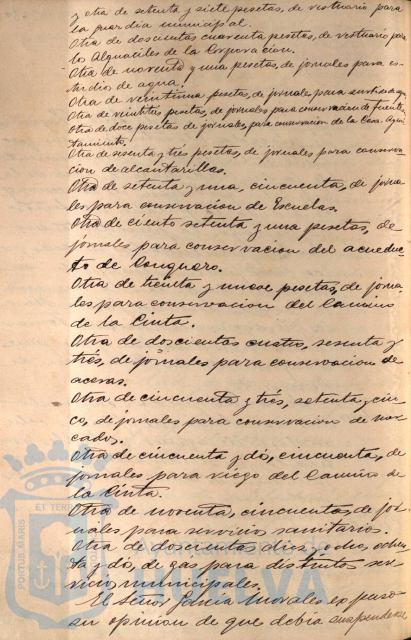 y otra de setenta y siete pesetas, de vestuario para
la guardia municipal.
Otra de doscientas cuarenta pesetas, de vestuario para
los Alguaciles de la Corporacion.
Otra de noventa y una pesetas, de jornales para es-
tudio de agua.
Otra de veintiuna pesetas, de jornales para surtido agua
Otra de veintitres pesetas, de jornales para conservacion de fuentes
Otra de doce pesetas de jornales, para conservacion de la Casa Ayun
tamiento.
Otra de sesenta y tres pesetas, de jornales para conserva-
cion de alcantarillas.
Otra de setenta y una, cincuenta, de jorna-
les para conservacion de Escuelas.
Otra de ciento setenta y una pesetas, de
jornales para conservacion del acueduc-
to de Conquero.
Otra de treinta y nueve pesetas, de jorna-
les para conservacion del Camino
de la Cinta.
Otra de doscientas cuatro, sesenta y
tres, de jornales para conservacion de
aceras.
Otra de cincuenta y tres, setenta y cin-
co, de jornales para conservacion de mer-
cados.
Otra de cincuenta y dos, cincuenta, de
jornales para riego del Camino de
la Cinta.
Otra de noventa, cincuenta, de jor-
nales para servicio sanitario.
Otra de doscientas diez y ocho, ochen-
ta y dos, de gas para distintos ser-
vicios municipales.
El Señor García Morales expuso
su opinion de que debia suspenderse
ET TERRÆ
PORTUS MARIS
Ayuntamiento de
HUELVA